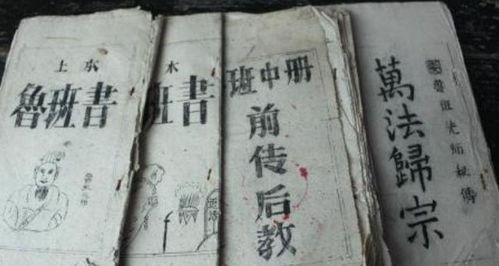 上本
魯班書
本
班書
班中册
前传后教
魯祖先師秘傳
萬法歸宗